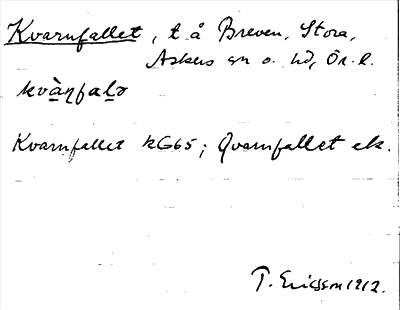 Kvarnfallet, t. å Breven, Stora,
Askers sn o. hd, Ör. l.
kvàɳfaḷə
Kvarnfallet kG65; Qvarnfallet ek.
T. Ericsson 1912.